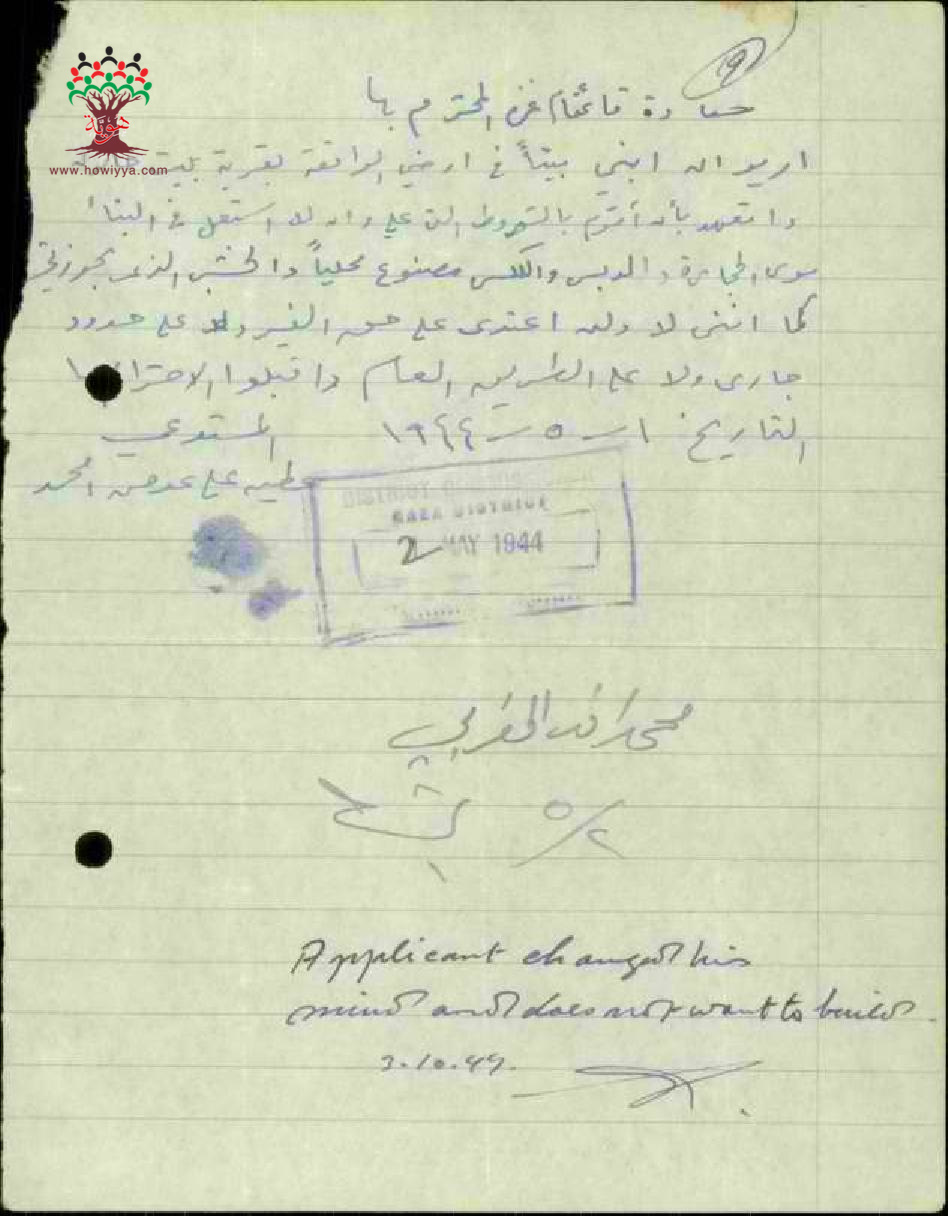 سعادة قائمقام غزه المحترم بها
اريد ان ابني بيتاً في ارضي الواقعة بقرية بيت
واتعهد بأن أقوم بالشروط التي علي وان لا استعمل في البناء
سوى الحجارة والدبس والكلس مصنوع محلياً والخشب الذي بحوزتي
كما انني لا ولن اعتدي على حق الغير ولا على حدود
جاري ولا على الطريق العام واقبلوا الاحترام
التاريخ ١ــ٥ــ١٩٤٤ المستدعي
عطيه علي عوض
هوية
www.howiyya.com
DISTRICT
GAZA DISTRICT
2 MAY 1944
محمد
٥/٢
Applicant changed his
mind and does not want to build.
3.10.44.